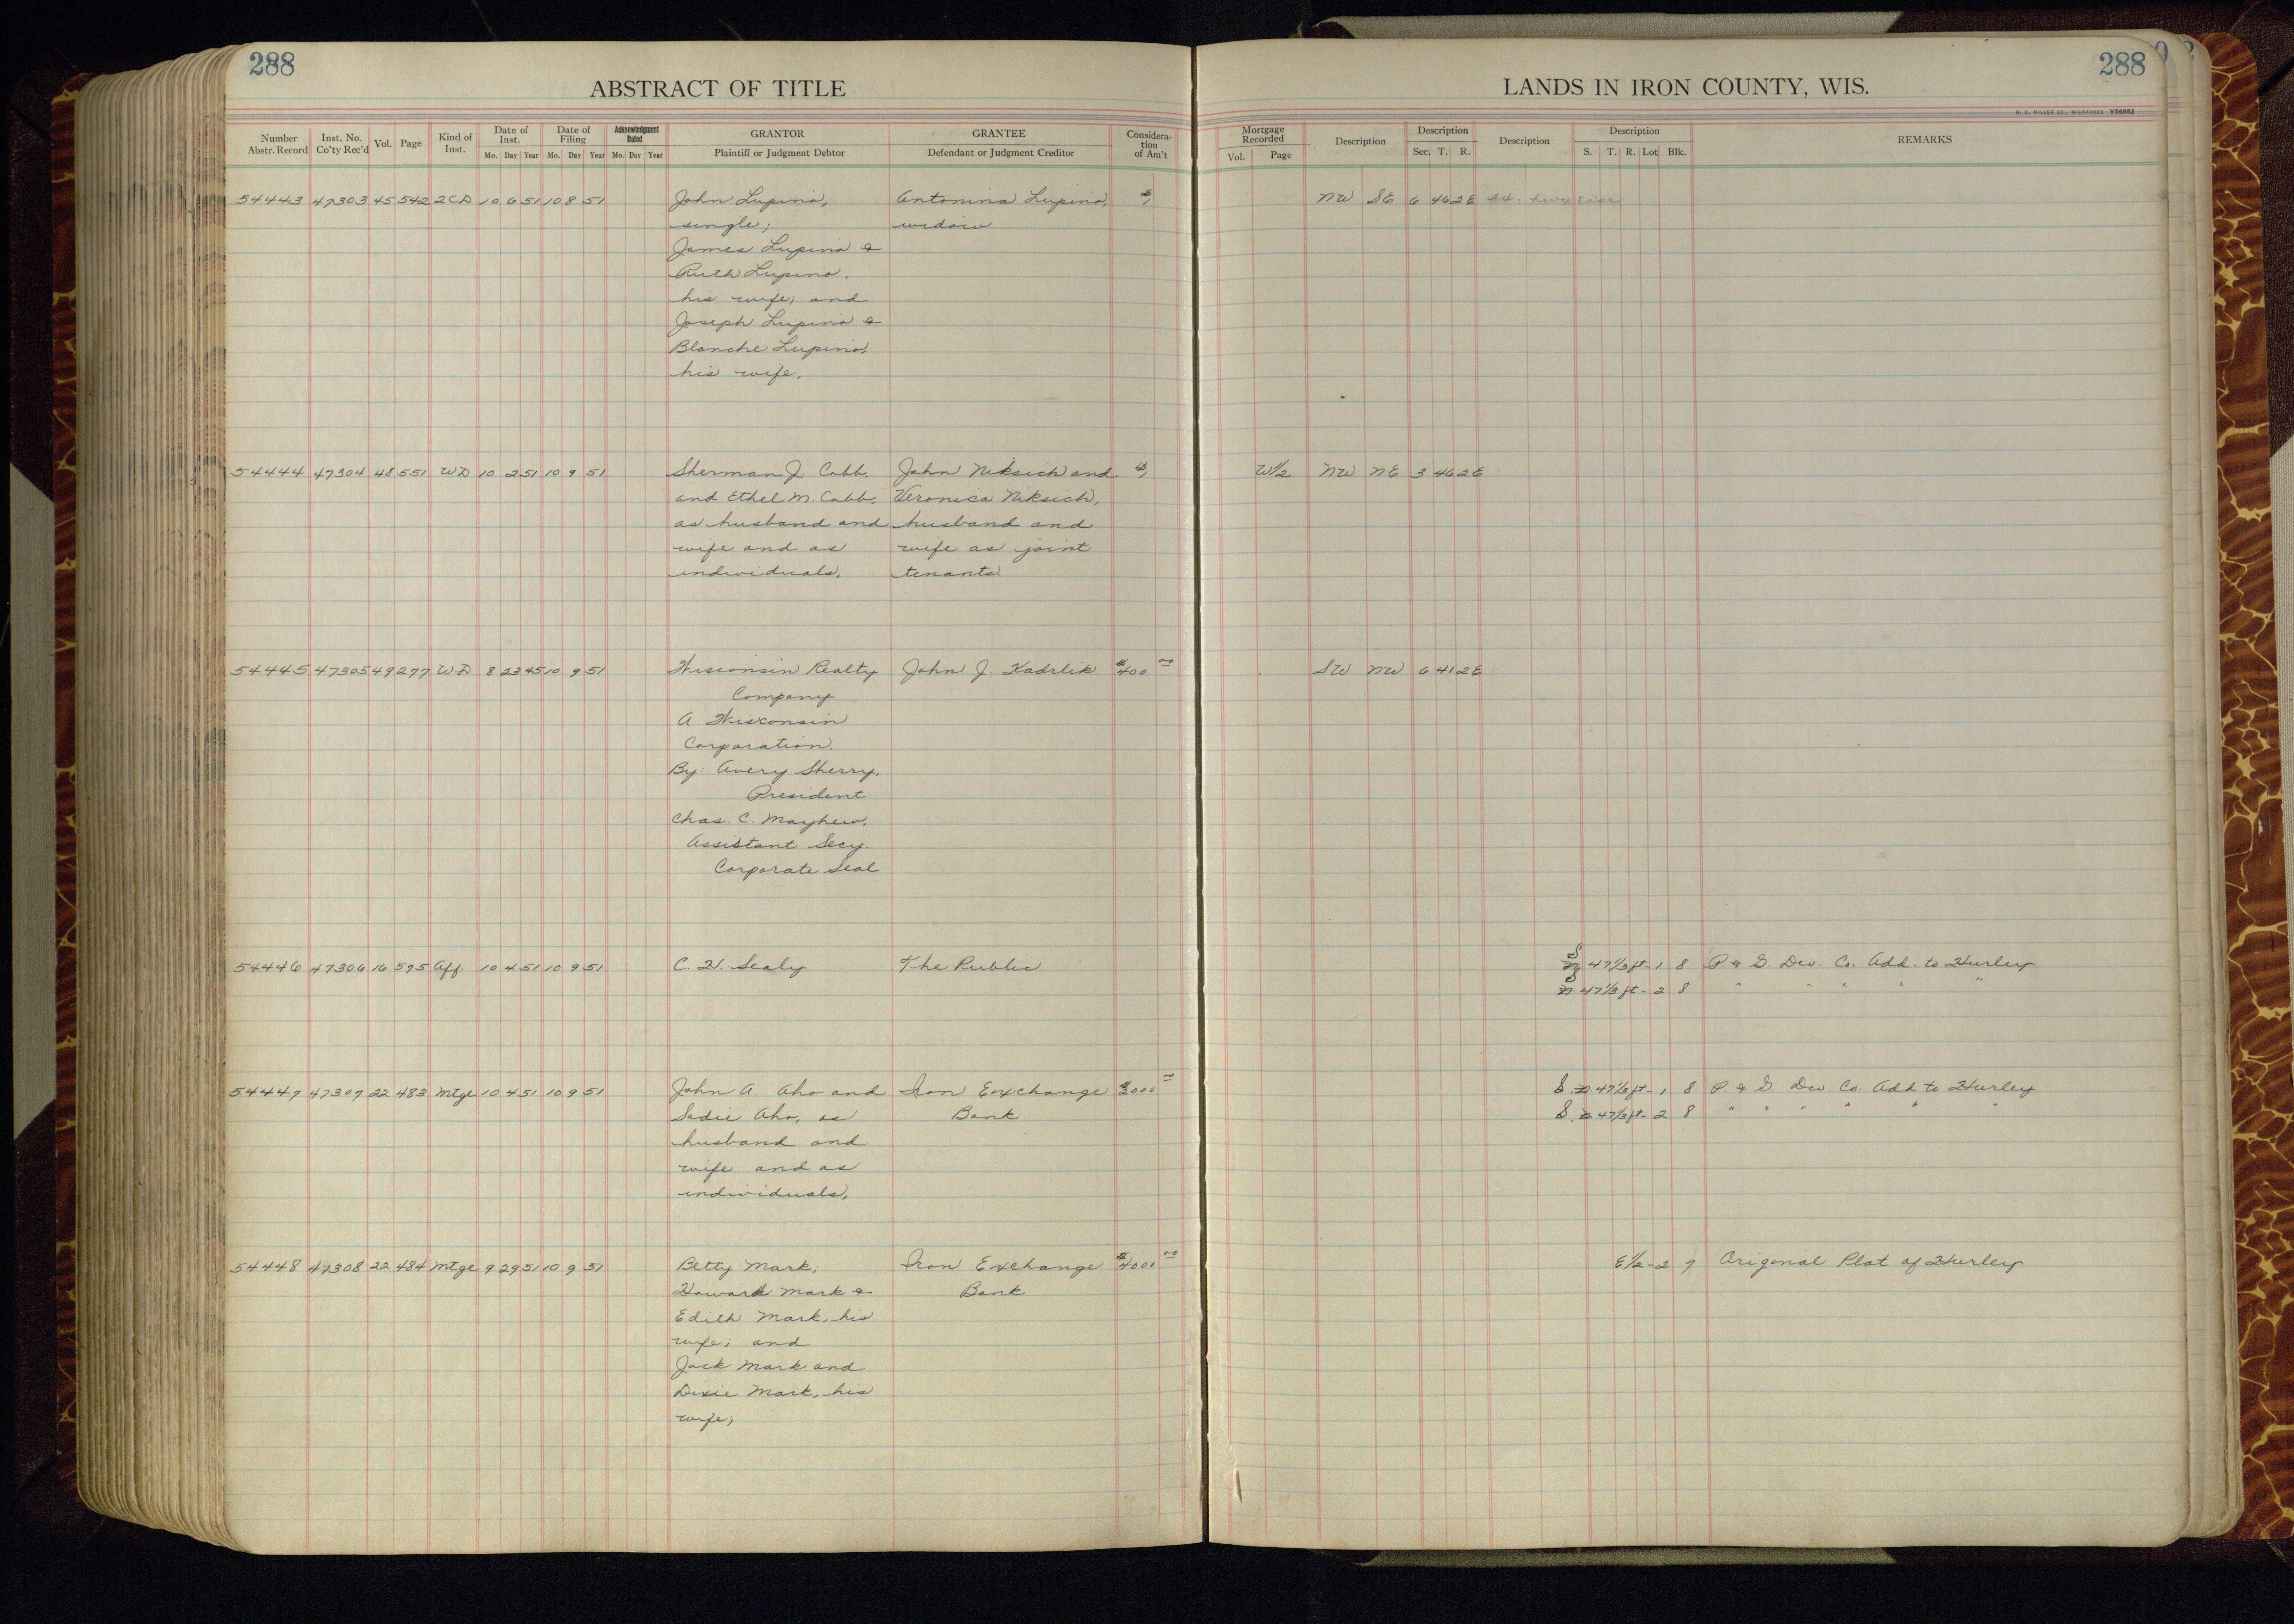 288
ABSTRACT OF TITLE
Number Abstr. Record | Inst. No. Co'ty Rec'd | Vol. | Page | Kind of Inst. | Date of Inst. Mo. Day Year | Date of Filing Mo. Day Year | Acknowledgment Dated Mo. Day Year | GRANTOR Plaintiff or Judgment Debtor | GRANTEE Defendant or Judgment Creditor | Considera-tion of Am't
54443 47303 45 542 2CD 10 6 51 10 8 51 John Lupino, Antonina Lupino, $1
single; widow
James Lupino &
Ruth Lupino,
his wife; and
Joseph Lupino &
Blanche Lupino,
his wife.
54444 47304 48 551 WD 10 2 51 10 9 51 Sherman J. Cobb, John Niksich and $1
and Ethel M. Cobb, Veronica Niksich,
as husband and husband and
wife and as wife as joint
individuals, tenants.
54445 47305 49 277 W.D 8 23 45 10 9 51 Wisconsin Realty John J. Kadrlik $400 00
Company
A Wisconsin
Corporation.
By: Avery Sherry,
President
Chas. C. Mayhew,
Assistant Secy.
Corporate Seal
54446 47306 16 595 Aff. 10 4 51 10 9 51 C. H. Sealy The Public
54447 47307 22 483 Mtge 10 4 51 10 9 51 John A. Aho and Iron Exchange $3000 00
Sadie Aho, as Bank
husband and
wife and as
individuals,
54448 47308 22 484 Mtge 9 29 51 10 9 51 Betty Mark; Iron Exchange $4000 00
Howard Mark & Bank
Edith Mark, his
wife; and
Jack Mark and
Dixie Mark, his
wife;
288
LANDS IN IRON COUNTY, WIS.
H. C. MILLER CO., MILWAUKEE
Mortgage Recorded Vol. Page | Description | Description Sec. T. R. | Description | Description S. T. R. Lot Blk. | REMARKS
NW SE 6 46 2E
W1/2 NW NE 3 46 2E
SW NW 6 41 2E
S 47 1/3 ft - 1 8 P. & G. Dev. Co. Add. to Hurley
S 47 1/3 ft - 2 8 " " " " "
S. 47 1/3 ft - 1 8 P & G. Dev Co. Add to Hurley
S. 47 1/3 ft - 2 8 " " " " " "
E 1/2 - 2 7 Original Plat of Hurley